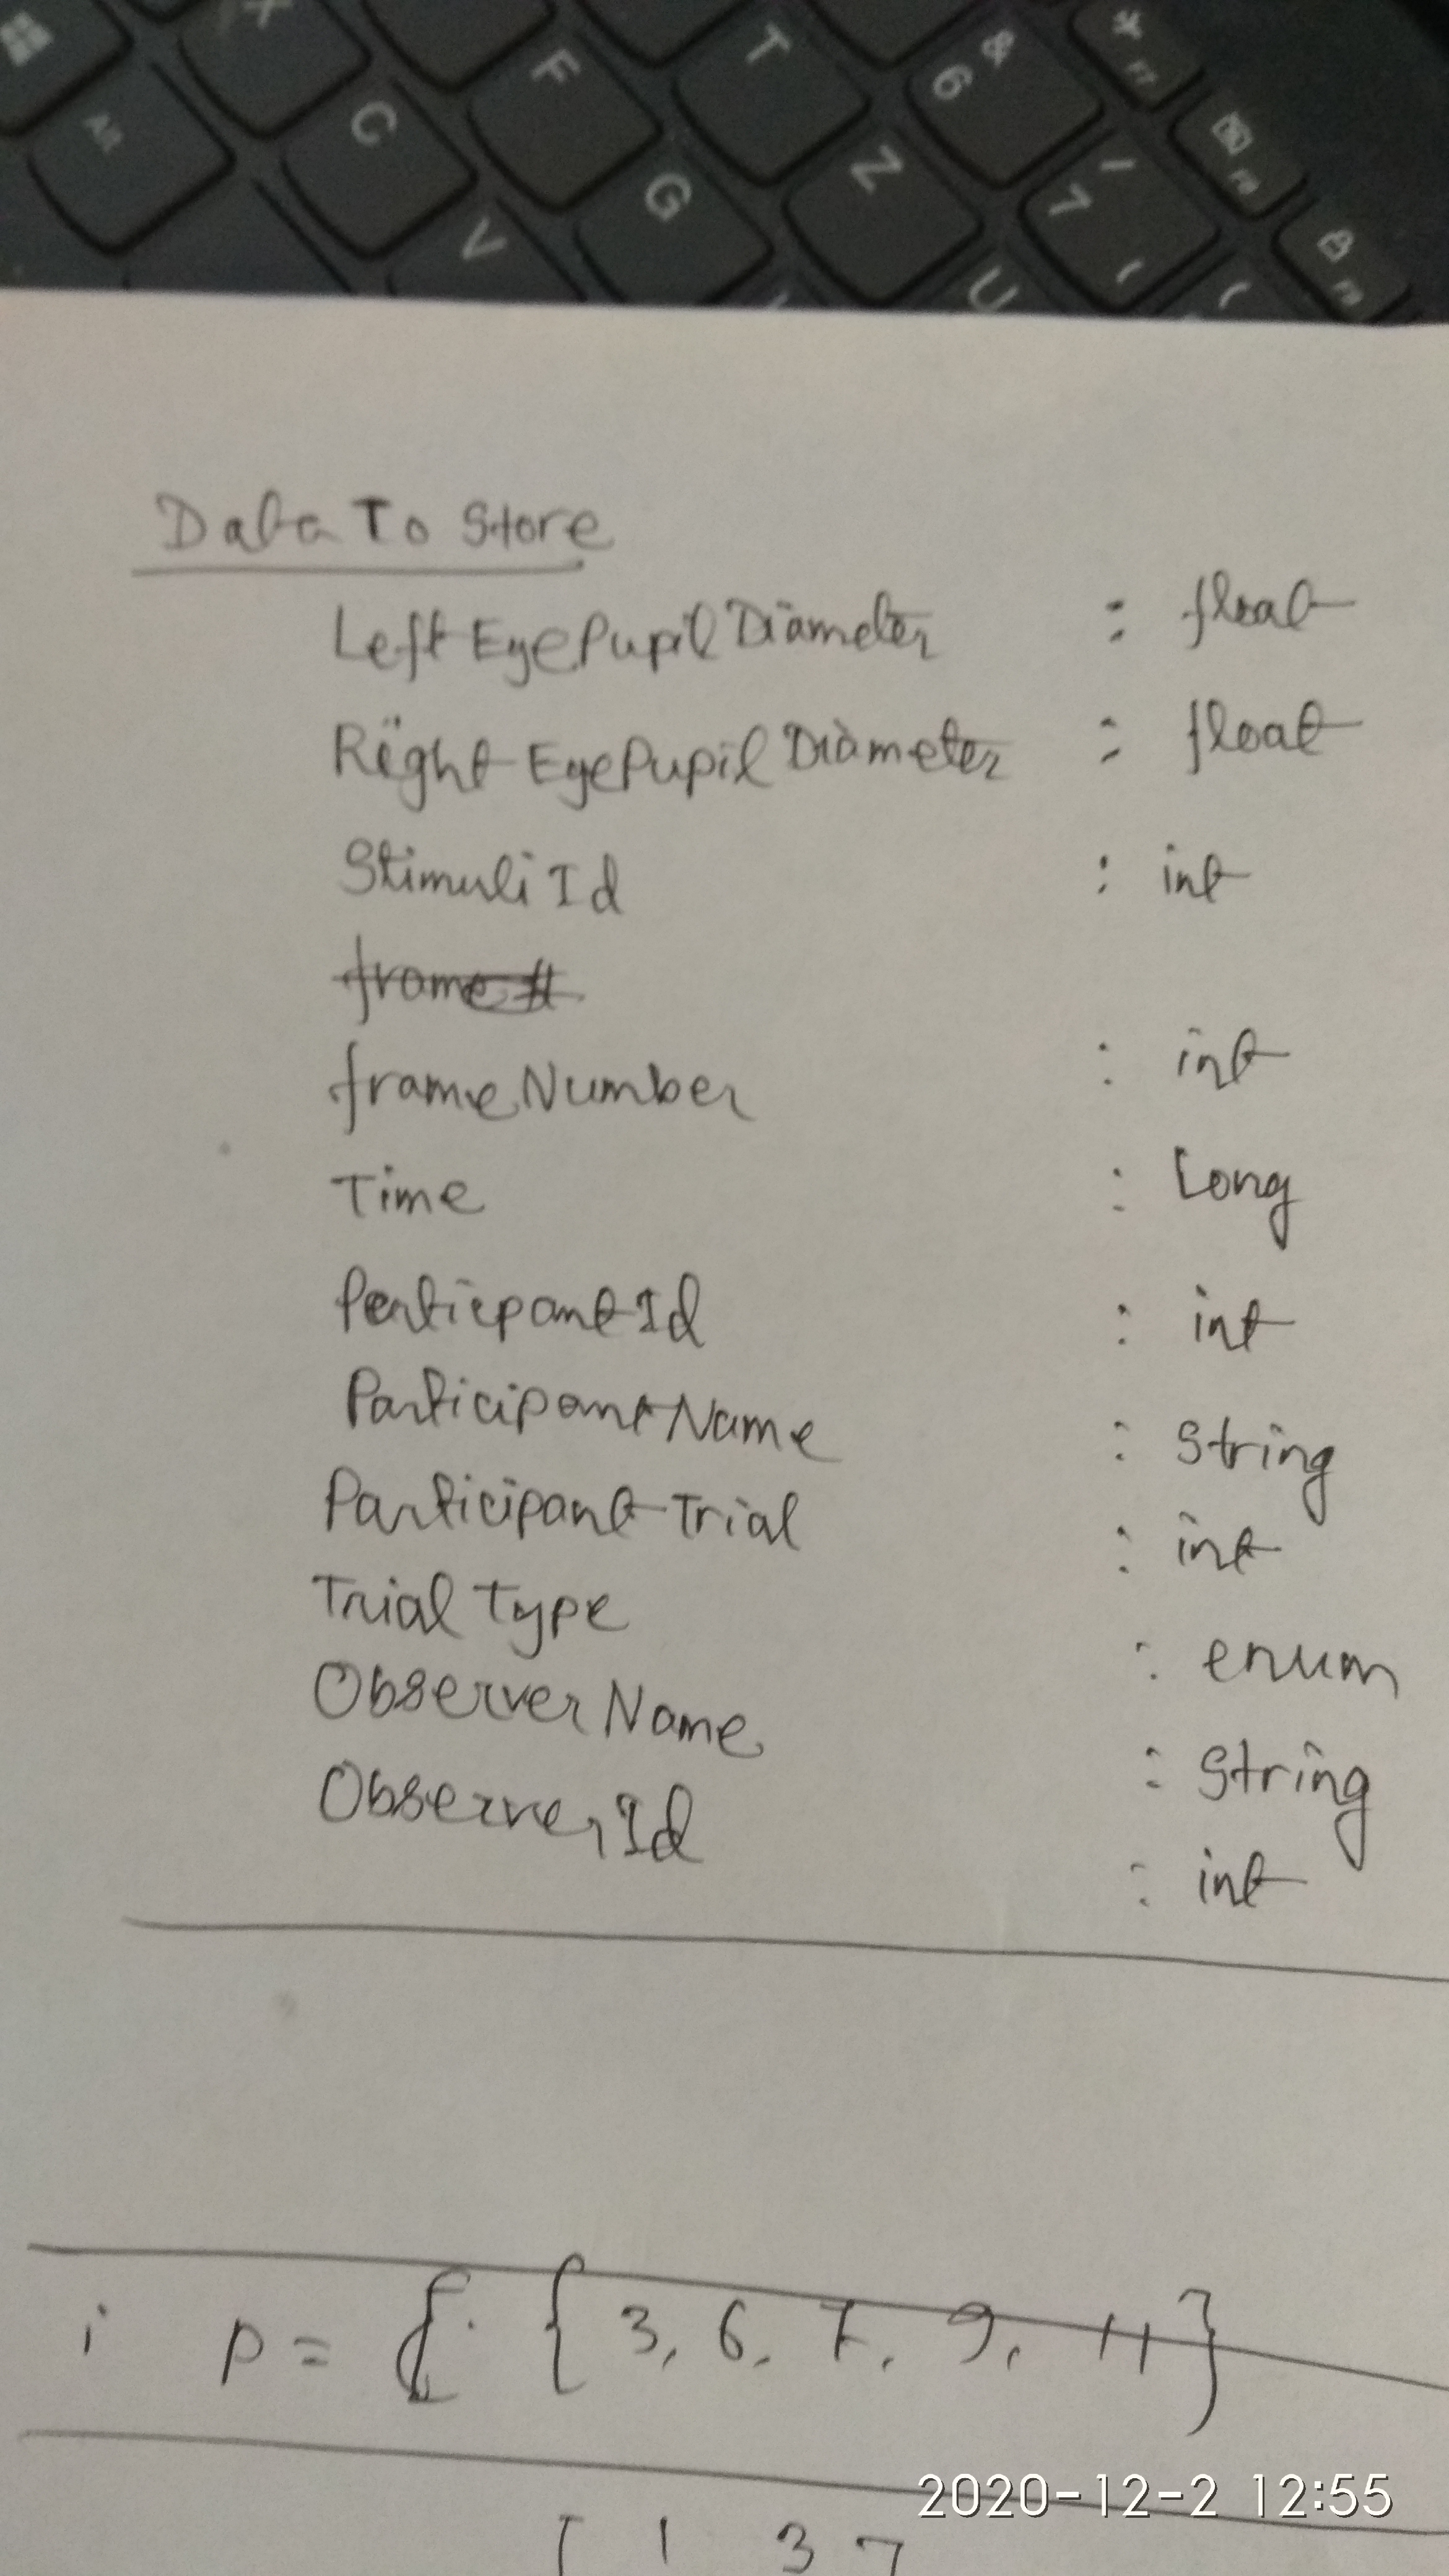 Alt
X
C
F
V
G
T
Z
& 6
/ 7
U
F7
F8
F9
Data To Store
LeftEyePupilDiameter : float
RightEyePupilDiameter : float
StimuliId : int
frame #
frameNumber : int
Time : Long
ParticpantId : int
ParticipantName : String
ParticipantTrial : int
TrialType : enum
ObserverName : String
ObserverId : int
i p = { { 3, 6, 7, 9, 11 }
[ 1 3 7
2020-12-2 12:55